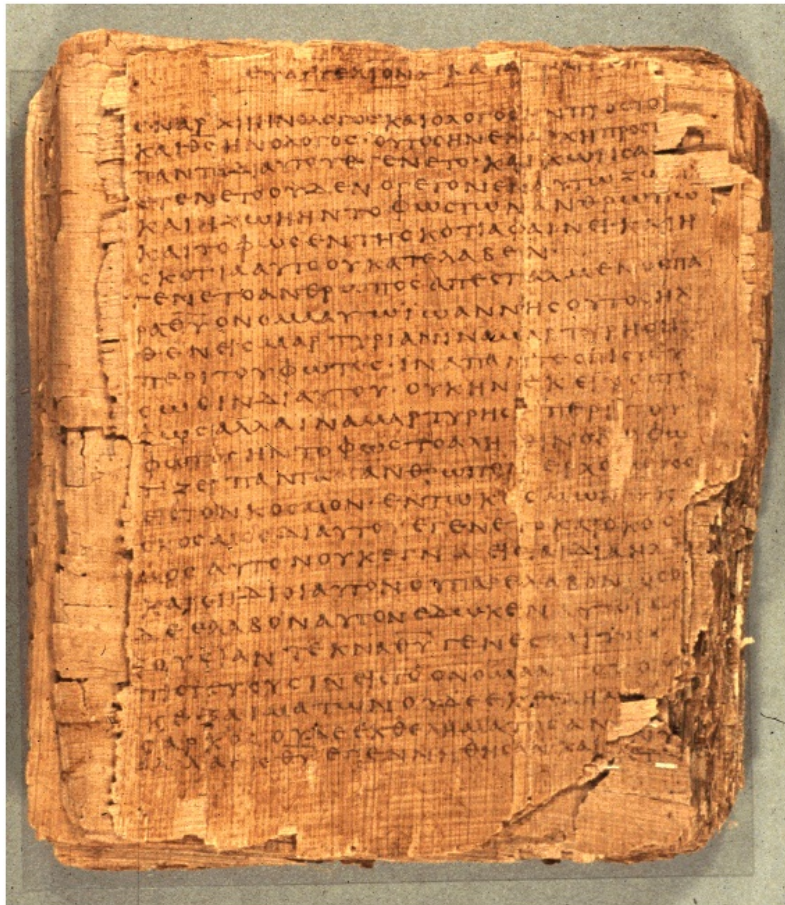 ΕΥΑΓΓΕΛΙΟΝ ΚΑΤΑ
ΕΝΑΡΧΗΗΝΟΛΟΓΟϹΚΑΙΟΛΟΓΟϹΗΝΠΡΟϹΤΟ
ΚΑΙΘ̅Ϲ̅ΗΝΟΛΟΓΟϹ·ΟΥΤΟϹΗΝΕΝΑΡΧΗΠΡΟϹΤ
ΠΑΝΤΑΔΙΑΥΤΟΥΕΓΕΝΕΤΟ·ΚΑΙΧΩΡΙϹΑ
ΕΓΕΝΕΤΟΟΥΔΕΝΟΓΕΓΟΝΕΝΕΝΑΥΤΩΖΩ
ΚΑΙΗΖΩΗΗΝΤΟΦΩϹΤΩΝΑΝΘΡΩΠΩΝ
ΚΑΙΤΟΦΩϹΕΝΤΗϹΚΟΤΙΑΦΑΙΝΕΙ·ΚΑΙΗ
ϹΚΟΤΙΑΑΥΤΟΟΥΚΑΤΕΛΑΒΕΝ·
ΕΓΕΝΕΤΟΑΝΘΡΩΠΟϹΑΠΕϹΤΑΛΜΕΝΟϹΠΑ
ΡΑΘ̅Υ̅ΟΝΟΜΑΑΥΤΩΙΩΑΝΝΗϹΟΥΤΟϹΗΛ
ΘΕΝΕΙϹΜΑΡΤΥΡΙΑΝΙΝΑΜΑΡΤΥΡΗϹΗ
ΠΕΡΙΤΟΥΦΩΤΟϹ·ΙΝΑΠΑΝΤΕϹΠΙϹΤΕΥ
ϹΩϹΙΝΔΙΑΥΤΟΥ·ΟΥΚΗΝΕΚΕΙΝΟϹΤΟ
ΦΩϹΑΛΛΑΙΝΑΜΑΡΤΥΡΗϹΗΠΕΡΙΤΟΥ
ΦΩΤΟϹΗΝΤΟΦΩϹΤΟΑΛΗΘΙΝΟΝΟΦΩ
ΤΙΖΕΙΠΑΝΤΑΑΝΘΡΩΠΟΝΕΡΧΟΜΕΝΟΝ
ΕΙϹΤΟΝΚΟϹΜΟΝ·ΕΝΤΩΚΟϹΜΩΗΝΚΑΙ
ΟΚΟϹΜΟϹΔΙΑΥΤΟΥΕΓΕΝΕΤΟΚΑΙΟΚΟϹ
ΜΟϹΑΥΤΟΝΟΥΚΕΓΝΩΕΙϹΤΑΙΔΙΑΗΛ
ΚΑΙΟΙΙΔΙΟΙΑΥΤΟΝΟΥΠΑΡΕΛΑΒΟΝ·ΟϹΟΙ
ΔΕΕΛΑΒΟΝΑΥΤΟΝΕΔΩΚΕΝΑΥΤΟΙϹΕ
ΞΟΥϹΙΑΝΤΕΚΝΑΘ̅Υ̅ΓΕΝΕϹΘΑΙΤΟΙϹ
ΠΙϹΤΕΥΟΥϹΙΝΕΙϹΤΟΟΝΟΜΑΑΥΤΟΥ
ΚΕΞΑΙΜΑΤΩΝΟΥΔΕΕΚΘΕΛΗΜΑ
ϹΑΡΚΟϹΟΥΔΕΕΚΘΕΛΗΜΑΤΟϹΑΝ
ΑΛΛΑΕΚΘ̅Υ̅ΕΓΕΝΝΗΘΗϹΑΝ·ΚΑΙ